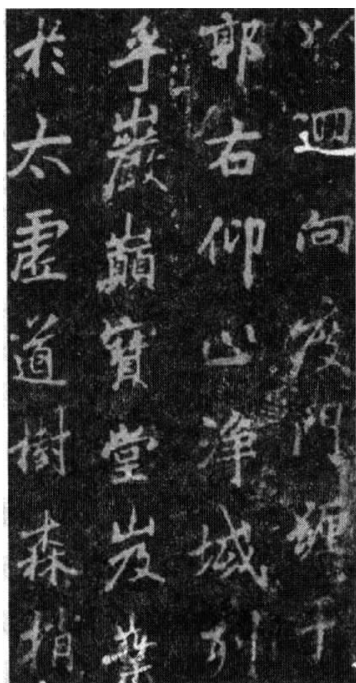 以迴向度門纏于
郭右仰止淨域列
乎巖巔寶堂岌業
於太虛道樹森梢